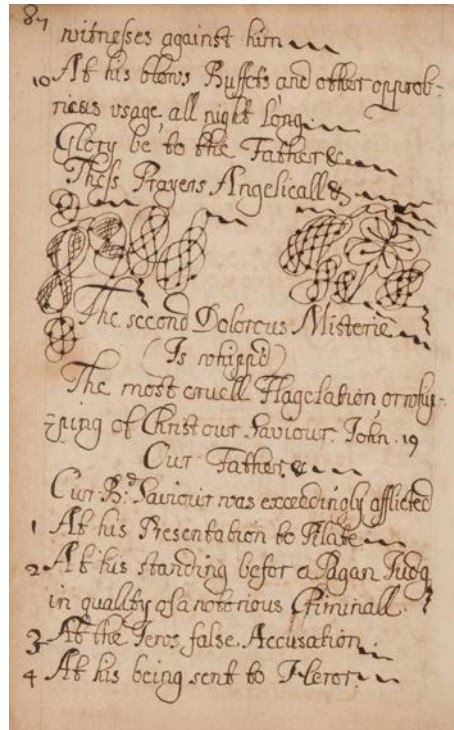 87
witnesses against him
10 At his blows Buffets and other opprob-
rious vsage, all night long.
Glory be, to the Father &c
Thess Prayers Angelicall &
The second Dolorous Misterie
(Is whippd)
The most cruell Flagelation, or whip-
-ping of Christ our Saviour. John. 19
Our Father. &
Our Bd. Saviour was exceedingly afflicted
1 At his Presentation to Pilate
2 At his standing befor a Pagan Judg
in quality of a notorious Criminall.
3 At the Jews false Accusation.
4 At his being sent to Heror.